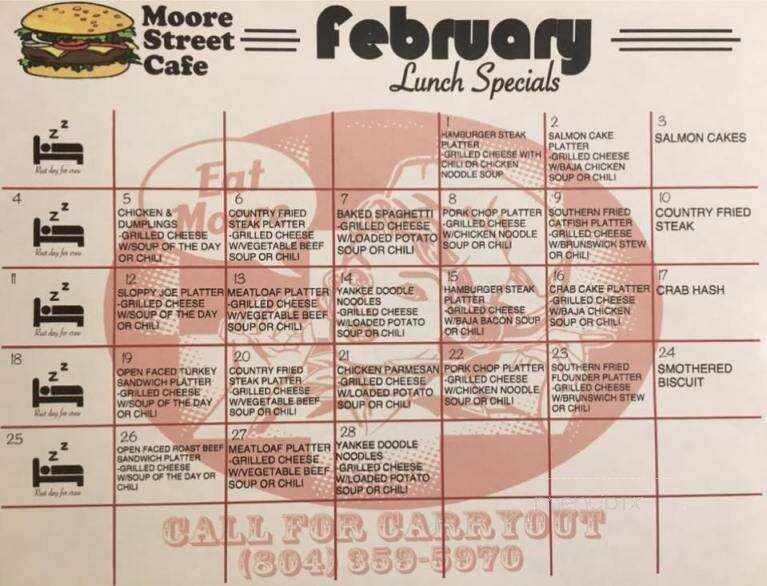 Moore
Street
Cafe
February
Lunch Specials
Eat
Moore
z z
Rest day for crew
1
HAMBURGER STEAK
PLATTER
-GRILLED CHEESE WITH
CHILI OR CHICKEN
NOODLE SOUP
2
SALMON CAKE
PLATTER
-GRILLED CHEESE
W/BAJA CHICKEN
SOUP OR CHILI
3
SALMON CAKES
4
z z
Rest day for crew
5
CHICKEN &
DUMPLINGS
-GRILLED CHEESE
W/SOUP OF THE DAY
OR CHILI
6
COUNTRY FRIED
STEAK PLATTER
-GRILLED CHEESE
W/VEGETABLE BEEF
SOUP OR CHILI
7
BAKED SPAGHETTI
-GRILLED CHEESE
W/LOADED POTATO
SOUP OR CHILI
8
PORK CHOP PLATTER
-GRILLED CHEESE
W/CHICKEN NOODLE
SOUP OR CHILI
9
SOUTHERN FRIED
CATFISH PLATTER
-GRILLED CHEESE
W/BRUNSWICK STEW
OR CHILI
10
COUNTRY FRIED
STEAK
11
z z
Rest day for crew
12
SLOPPY JOE PLATTER
-GRILLED CHEESE
W/SOUP OF THE DAY
OR CHILI
13
MEATLOAF PLATTER
-GRILLED CHEESE
W/VEGETABLE BEEF
SOUP OR CHILI
14
YANKEE DOODLE
NOODLES
-GRILLED CHEESE
W/LOADED POTATO
SOUP OR CHILI
15
HAMBURGER STEAK
PLATTER
-GRILLED CHEESE
W/BAJA BACON SOUP
OR CHILI
16
CRAB CAKE PLATTER
-GRILLED CHEESE
W/BAJA CHICKEN
SOUP OR CHILI
17
CRAB HASH
18
z z
Rest day for crew
19
OPEN FACED TURKEY
SANDWICH PLATTER
-GRILLED CHEESE
W/SOUP OF THE DAY
OR CHILI
20
COUNTRY FRIED
STEAK PLATTER
-GRILLED CHEESE
W/VEGETABLE BEEF
SOUP OR CHILI
21
CHICKEN PARMESAN
-GRILLED CHEESE
W/LOADED POTATO
SOUP OR CHILI
22
PORK CHOP PLATTER
-GRILLED CHEESE
W/CHICKEN NOODLE
SOUP OR CHILI
23
SOUTHERN FRIED
FLOUNDER PLATTER
-GRILLED CHEESE
W/BRUNSWICK STEW
OR CHILI
24
SMOTHERED
BISCUIT
25
z z
Rest day for crew
26
OPEN FACED ROAST BEEF
SANDWICH PLATTER
-GRILLED CHEESE
W/SOUP OF THE DAY OR
CHILI
27
MEATLOAF PLATTER
-GRILLED CHEESE
W/VEGETABLE BEEF
SOUP OR CHILI
28
YANKEE DOODLE
NOODLES
-GRILLED CHEESE
W/LOADED POTATO
SOUP OR CHILI
CALL FOR CARRYOUT
(804) 359-5970